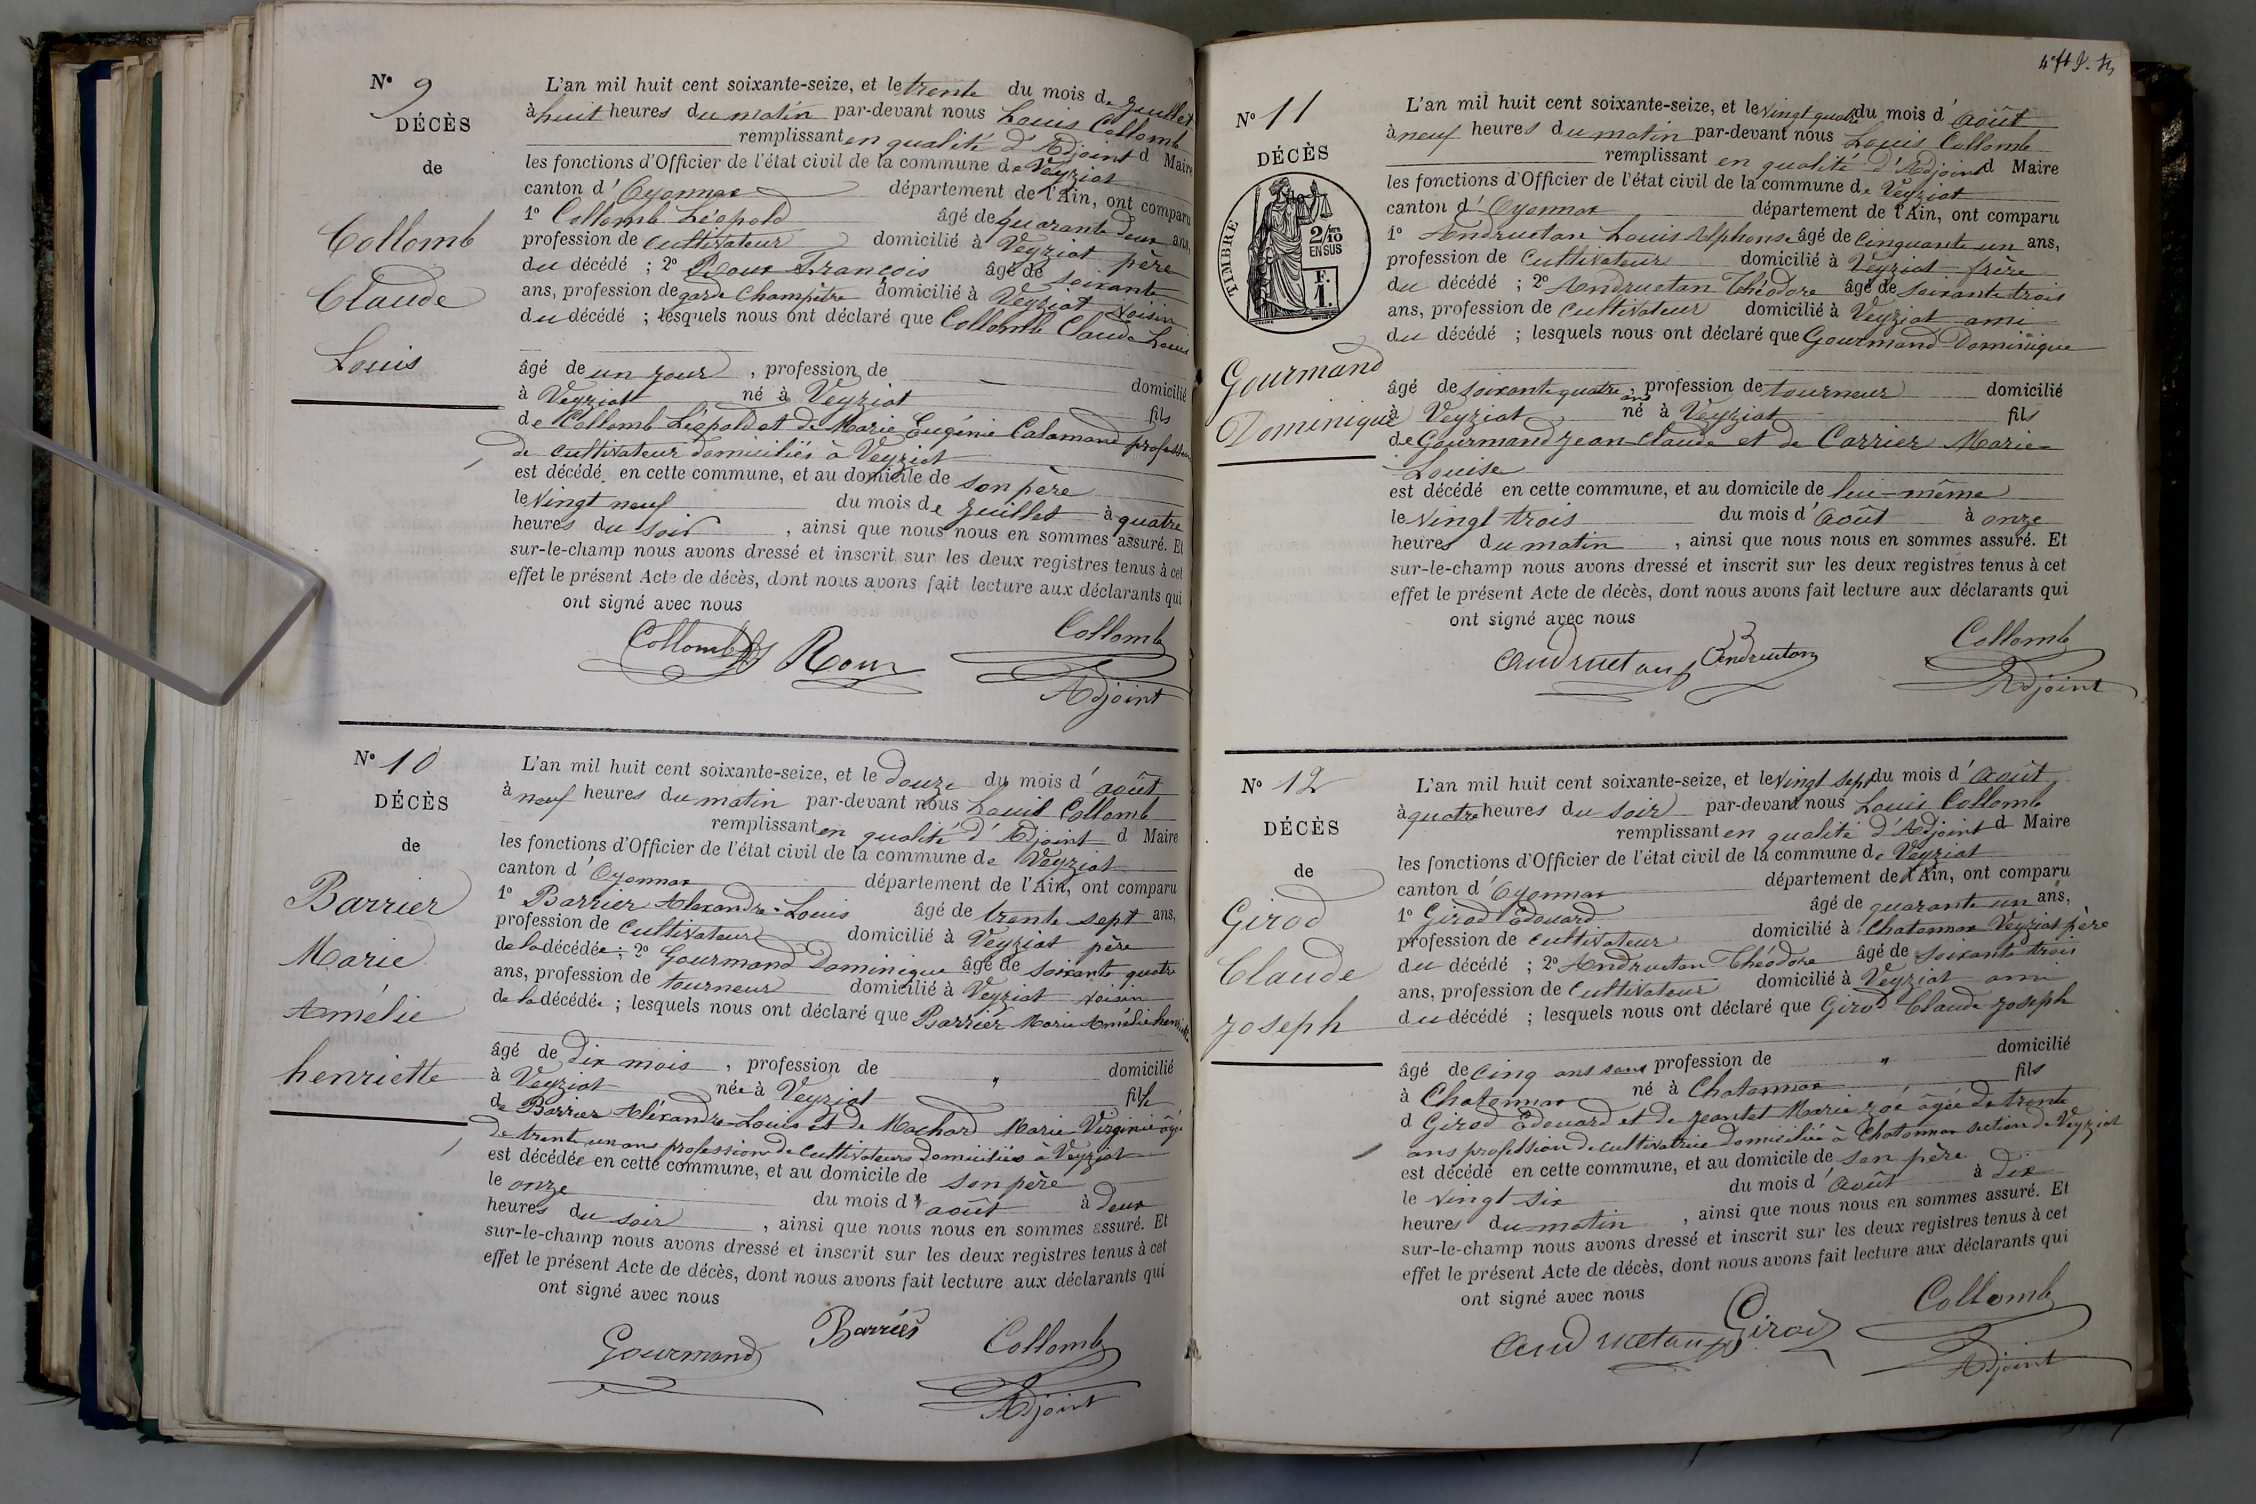 N° 9
DÉCÈS
de
Collomb
Claude
Louis
L'an mil huit cent soixante-seize, et le trente du mois de Juillet
à huit heures du matin par-devant nous Louis Collomb
remplissant en qualité d'Adjoint d Maire
les fonctions d'Officier de l'état civil de la commune de Veyziat
canton d'Oyonnax département de l'Ain, ont comparu
1° Collomb Léopold âgé de quarante deux ans,
profession de cultivateur domicilié à Veyziat père
du décédé ; 2° Roux François âgé de soixante
ans, profession de garde Champêtre domicilié à Veyziat voisin
du décédé ; lesquels nous ont déclaré que Collomb Claude Louis
âgé de un jour , profession de — domicilié
à Veyziat né à Veyziat fils
de Collomb Léopold et de Marie Eugénie Calamand profession
de cultivateur domiciliés à Veyziat
est décédé en cette commune, et au domicile de son père
le vingt neuf du mois de Juillet à quatre
heures du soir , ainsi que nous nous en sommes assuré. Et
sur-le-champ nous avons dressé et inscrit sur les deux registres tenus à cet
effet le présent Acte de décès, dont nous avons fait lecture aux déclarants qui
ont signé avec nous
Collomb Roux Collomb
Adjoint
N° 10
DÉCÈS
de
Barrier
Marie
Amélie
henriette
L'an mil huit cent soixante-seize, et le douze du mois d'août
à neuf heures du matin par-devant nous Louis Collomb
remplissant en qualité d'Adjoint d Maire
les fonctions d'Officier de l'état civil de la commune de Veyziat
canton d'Oyonnax département de l'Ain, ont comparu
1° Barrier Alexandre-Louis âgé de trente sept ans,
profession de cultivateur domicilié à Veyziat père
de la décédée ; 2° Gourmand Dominique âgé de soixante quatre
ans, profession de tourneur domicilié à Veyziat voisin
de la décédée ; lesquels nous ont déclaré que Barrier Marie Amélie henriette
âgé de dix mois , profession de " domicilié
à Veyziat née à Veyziat fille
de Barrier Aléxandre-Louis et de Machard Marie Virginie âgée
de trente un ans profession de cultivateurs domiciliés à Veyziat
est décédée en cette commune, et au domicile de son père
le onze du mois d'août à deux
heures du soir , ainsi que nous nous en sommes assuré. Et
sur-le-champ nous avons dressé et inscrit sur les deux registres tenus à cet
effet le présent Acte de décès, dont nous avons fait lecture aux déclarants qui
ont signé avec nous
Gourmand Barrier Collomb
Adjoint
N° 11
DÉCÈS
TIMBRE
2/10 EN SUS
F. 1.
Gourmand
Dominique
L'an mil huit cent soixante-seize, et le vingt quatre du mois d'août
à neuf heures du matin par-devant nous Louis Collomb
remplissant en qualité d'Adjoint d Maire
les fonctions d'Officier de l'état civil de la commune de Veyziat
canton d'Oyonnax département de l'Ain, ont comparu
1° Andruetan Louis Alphonse âgé de cinquante un ans,
profession de cultivateur domicilié à Veyziat frère
du décédé ; 2° Andruetan Théodore âgé de soixante trois
ans, profession de cultivateur domicilié à Veyziat ami
du décédé ; lesquels nous ont déclaré que Gourmand Dominique
âgé de soixante quatre ans, profession de tourneur domicilié
à Veyziat né à Veyziat fils
de Gourmand Jean-Claude et de Carrier Marie-
Louise
est décédé en cette commune, et au domicile de lui-même
le vingt trois du mois d'août à onze
heures du matin , ainsi que nous nous en sommes assuré. Et
sur-le-champ nous avons dressé et inscrit sur les deux registres tenus à cet
effet le présent Acte de décès, dont nous avons fait lecture aux déclarants qui
ont signé avec nous
Andruetan Andruetan Collomb
Adjoint
N° 12
DÉCÈS
de
Girod
Claude
Joseph
L'an mil huit cent soixante-seize, et le vingt sept du mois d'août
à quatre heures du soir par-devant nous Louis Collomb
remplissant en qualité d'Adjoint d Maire
les fonctions d'Officier de l'état civil de la commune de Veyziat
canton d'Oyonnax département de l'Ain, ont comparu
1° Girod Edouard âgé de quarante un ans,
profession de cultivateur domicilié à Chatonnax Veyziat père
du décédé ; 2° Andruetan Théodore âgé de soixante trois
ans, profession de cultivateur domicilié à Veyziat ami
du décédé ; lesquels nous ont déclaré que Girod Claude Joseph
âgé de cinq ans sans profession de " domicilié
à Chatonnax né à Chatonnax fils
d Girod Edouard et de Jeantet Marie Zoé âgée de trente
ans profession de cultivatrice domiciliée à Chatonnax section de Veyziat
est décédé en cette commune, et au domicile de son père
le vingt six du mois d'août à dix
heures du matin , ainsi que nous nous en sommes assuré. Et
sur-le-champ nous avons dressé et inscrit sur les deux registres tenus à cet
effet le présent Acte de décès, dont nous avons fait lecture aux déclarants qui
ont signé avec nous
Andruetan Girod Collomb
Adjoint